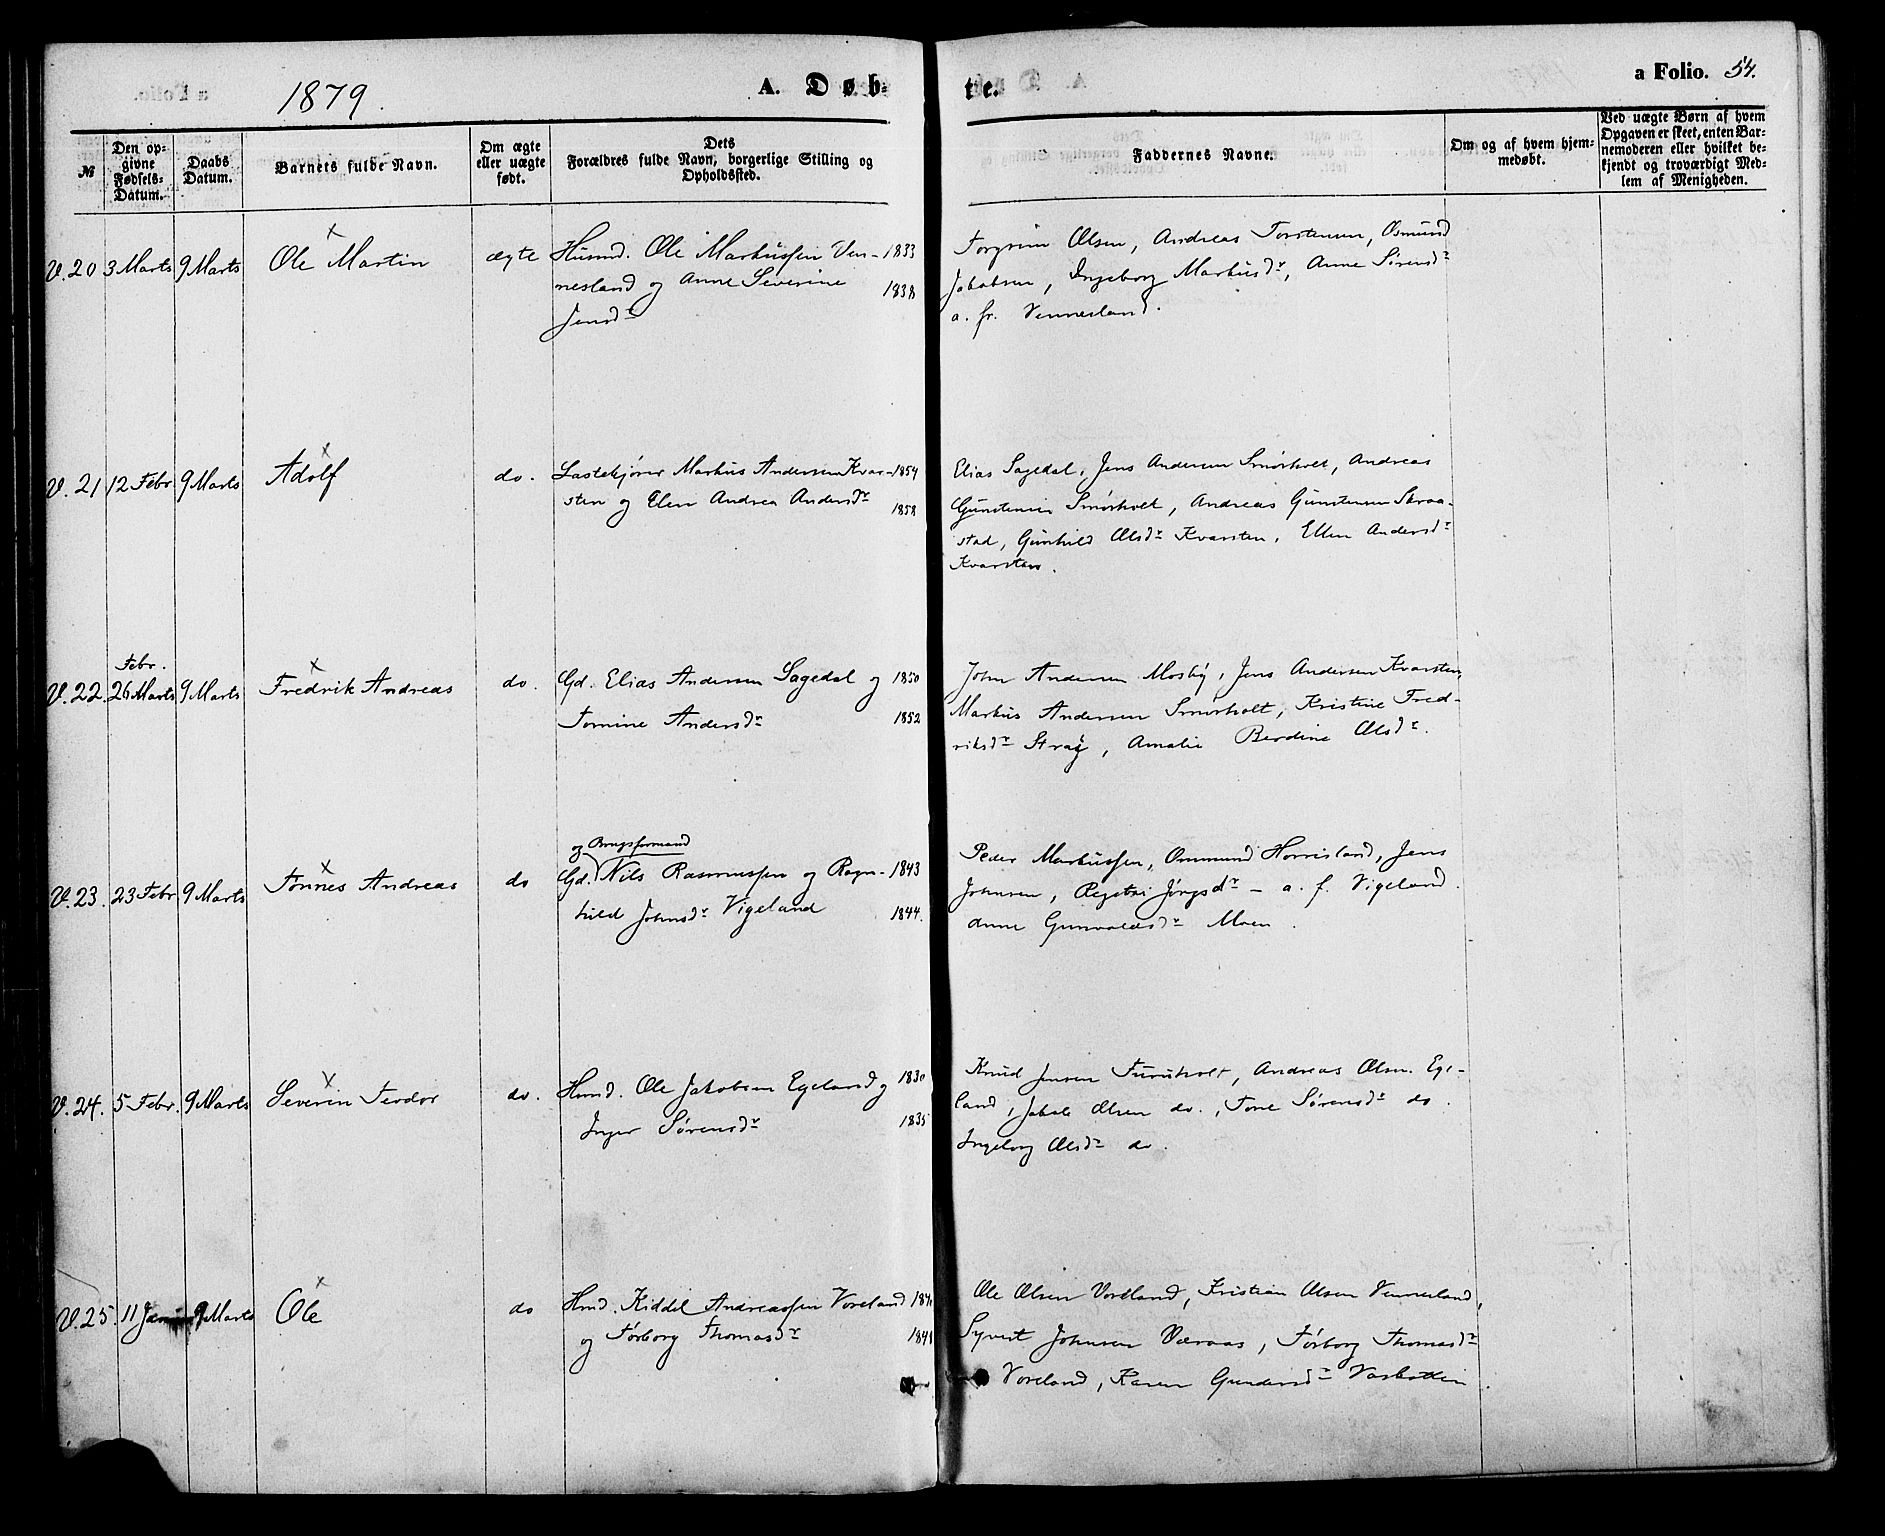 1879.
A. Døb-
te.
a Folio. 54.
№
Den op-
givne
Fødsels-
Datum.
Daabs
Datum.
Barnets fulde Navn.
Om ægte
eller uægte
født.
Dets
Forældres fulde Navn, borgerlige Stilling og
Opholdssted.
Faddernes Navne.
Om og af hvem hjem-
medøbt.
Ved uægte Børn af hvem
Opgaven er skeet, enten Bar-
nemoderen eller hvilket be-
kjendt og troværdigt Med-
lem af Menigheden.
V. 20 3 Marts 9 Marts Ole Martin ægte Husmd. Ole Markussen Ven- 1833
nesland og Anne Severine 1838
Jensdr
Torgrim Olsen, Andreas Torstensen, Osmund
Jakobsen, Ingeborg Markusdr, Anne Sørensdr
a. fr. Vennesland.
V. 21 12 Febr 9 Marts Adolf do. Lastekjører Markus Andersen Kvar- 1854
sten og Elen Andrea Andersdr 1858
Elias Sagedal, Jens Andersen Smørholt, Andreas
Gunstensen Smørholt, Andreas Gunstensen Skraa-
stad, Gunhild Olsdr Kvarsten, Ellen Andersdr
Kvarsten.
Febr.
V. 22. 26 Marts 9 Marts Fredrik Andreas do. Gd. Elias Andersen Sagedal og 1850
Tomine Andersdr 1852
John Andersen Mosby, Jens Andersen Kvarsten,
Markus Andersen Smørholt, Kristine Fred-
riksdr Stray, Amalie Berdine Olsdr.
og Brugsformand
V. 23. 23 Febr 9 Marts Tønnes Andreas do Gd. Nils Rasmussen og Ragn- 1843
hild Johnsdr Vigeland 1844.
Peder Markussen, Ommund Horrisland, Jens
Johnsen, Regine Jørgsdr - a. f. Vigeland.
Anne Gunvaldsdr Moen.
V. 24. 5 Febr. 9 Marts Severin Teodor do. Hmd. Ole Jakobsen Egeland og 1830
Inger Sørensdr 1835
Knud Jensen Furuholt, Andreas Olsen Ege-
land, Jakob Olsen do., Tone Sørensdr do.
Ingeborg Olsdr do.
V. 25. 11 Jan 9 Marts Ole do Hmd. Kiddel Andreassen Voreland
og Torborg Thomasdr 1841
Ole Olsen Voreland, Kristian Olsen Vennesland,
Syvert Johnsen Væraas, Torborg Thomasdr
Voreland, Karen Gundersdr Vasbotten